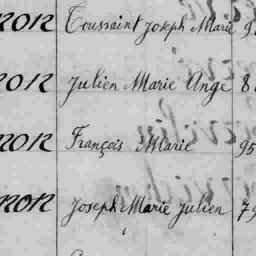 non Toussaint Joseph Marie 9
non Julien Marie Ange 8
non François Marie 95
non Joseph Marie Julien 79